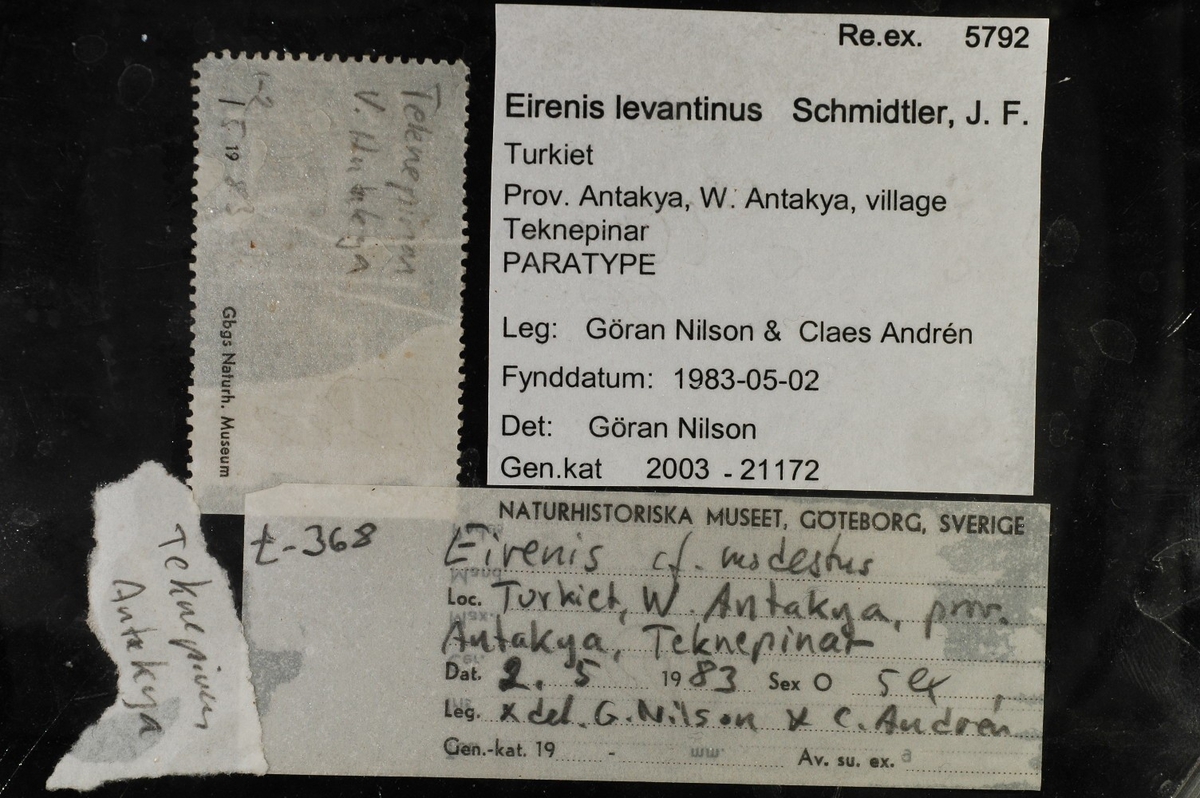 Re.ex. 5792
Eirenis levantinus Schmidtler, J. F.
Turkiet
Prov. Antakya, W. Antakya, village
Teknepinar
PARATYPE
Leg: Göran Nilson & Claes Andrén
Fynddatum: 1983-05-02
Det: Göran Nilson
Gen.kat 2003 - 21172
Teknepinar
V. Antakya
1-2
/5 1983
Gbgs Naturh. Museum
Teknepinar
Antakya
t-368
NATURHISTORISKA MUSEET, GÖTEBORG, SVERIGE
Eirenis cf. modestus
Loc. Turkiet, W. Antakya, prov.
Antakya, Teknepinar
Dat. 2. 5 1983 Sex O 5 ex
Leg. & det. G. Nilson & C. Andrén
Gen.-kat. 19 - Av. su. ex.